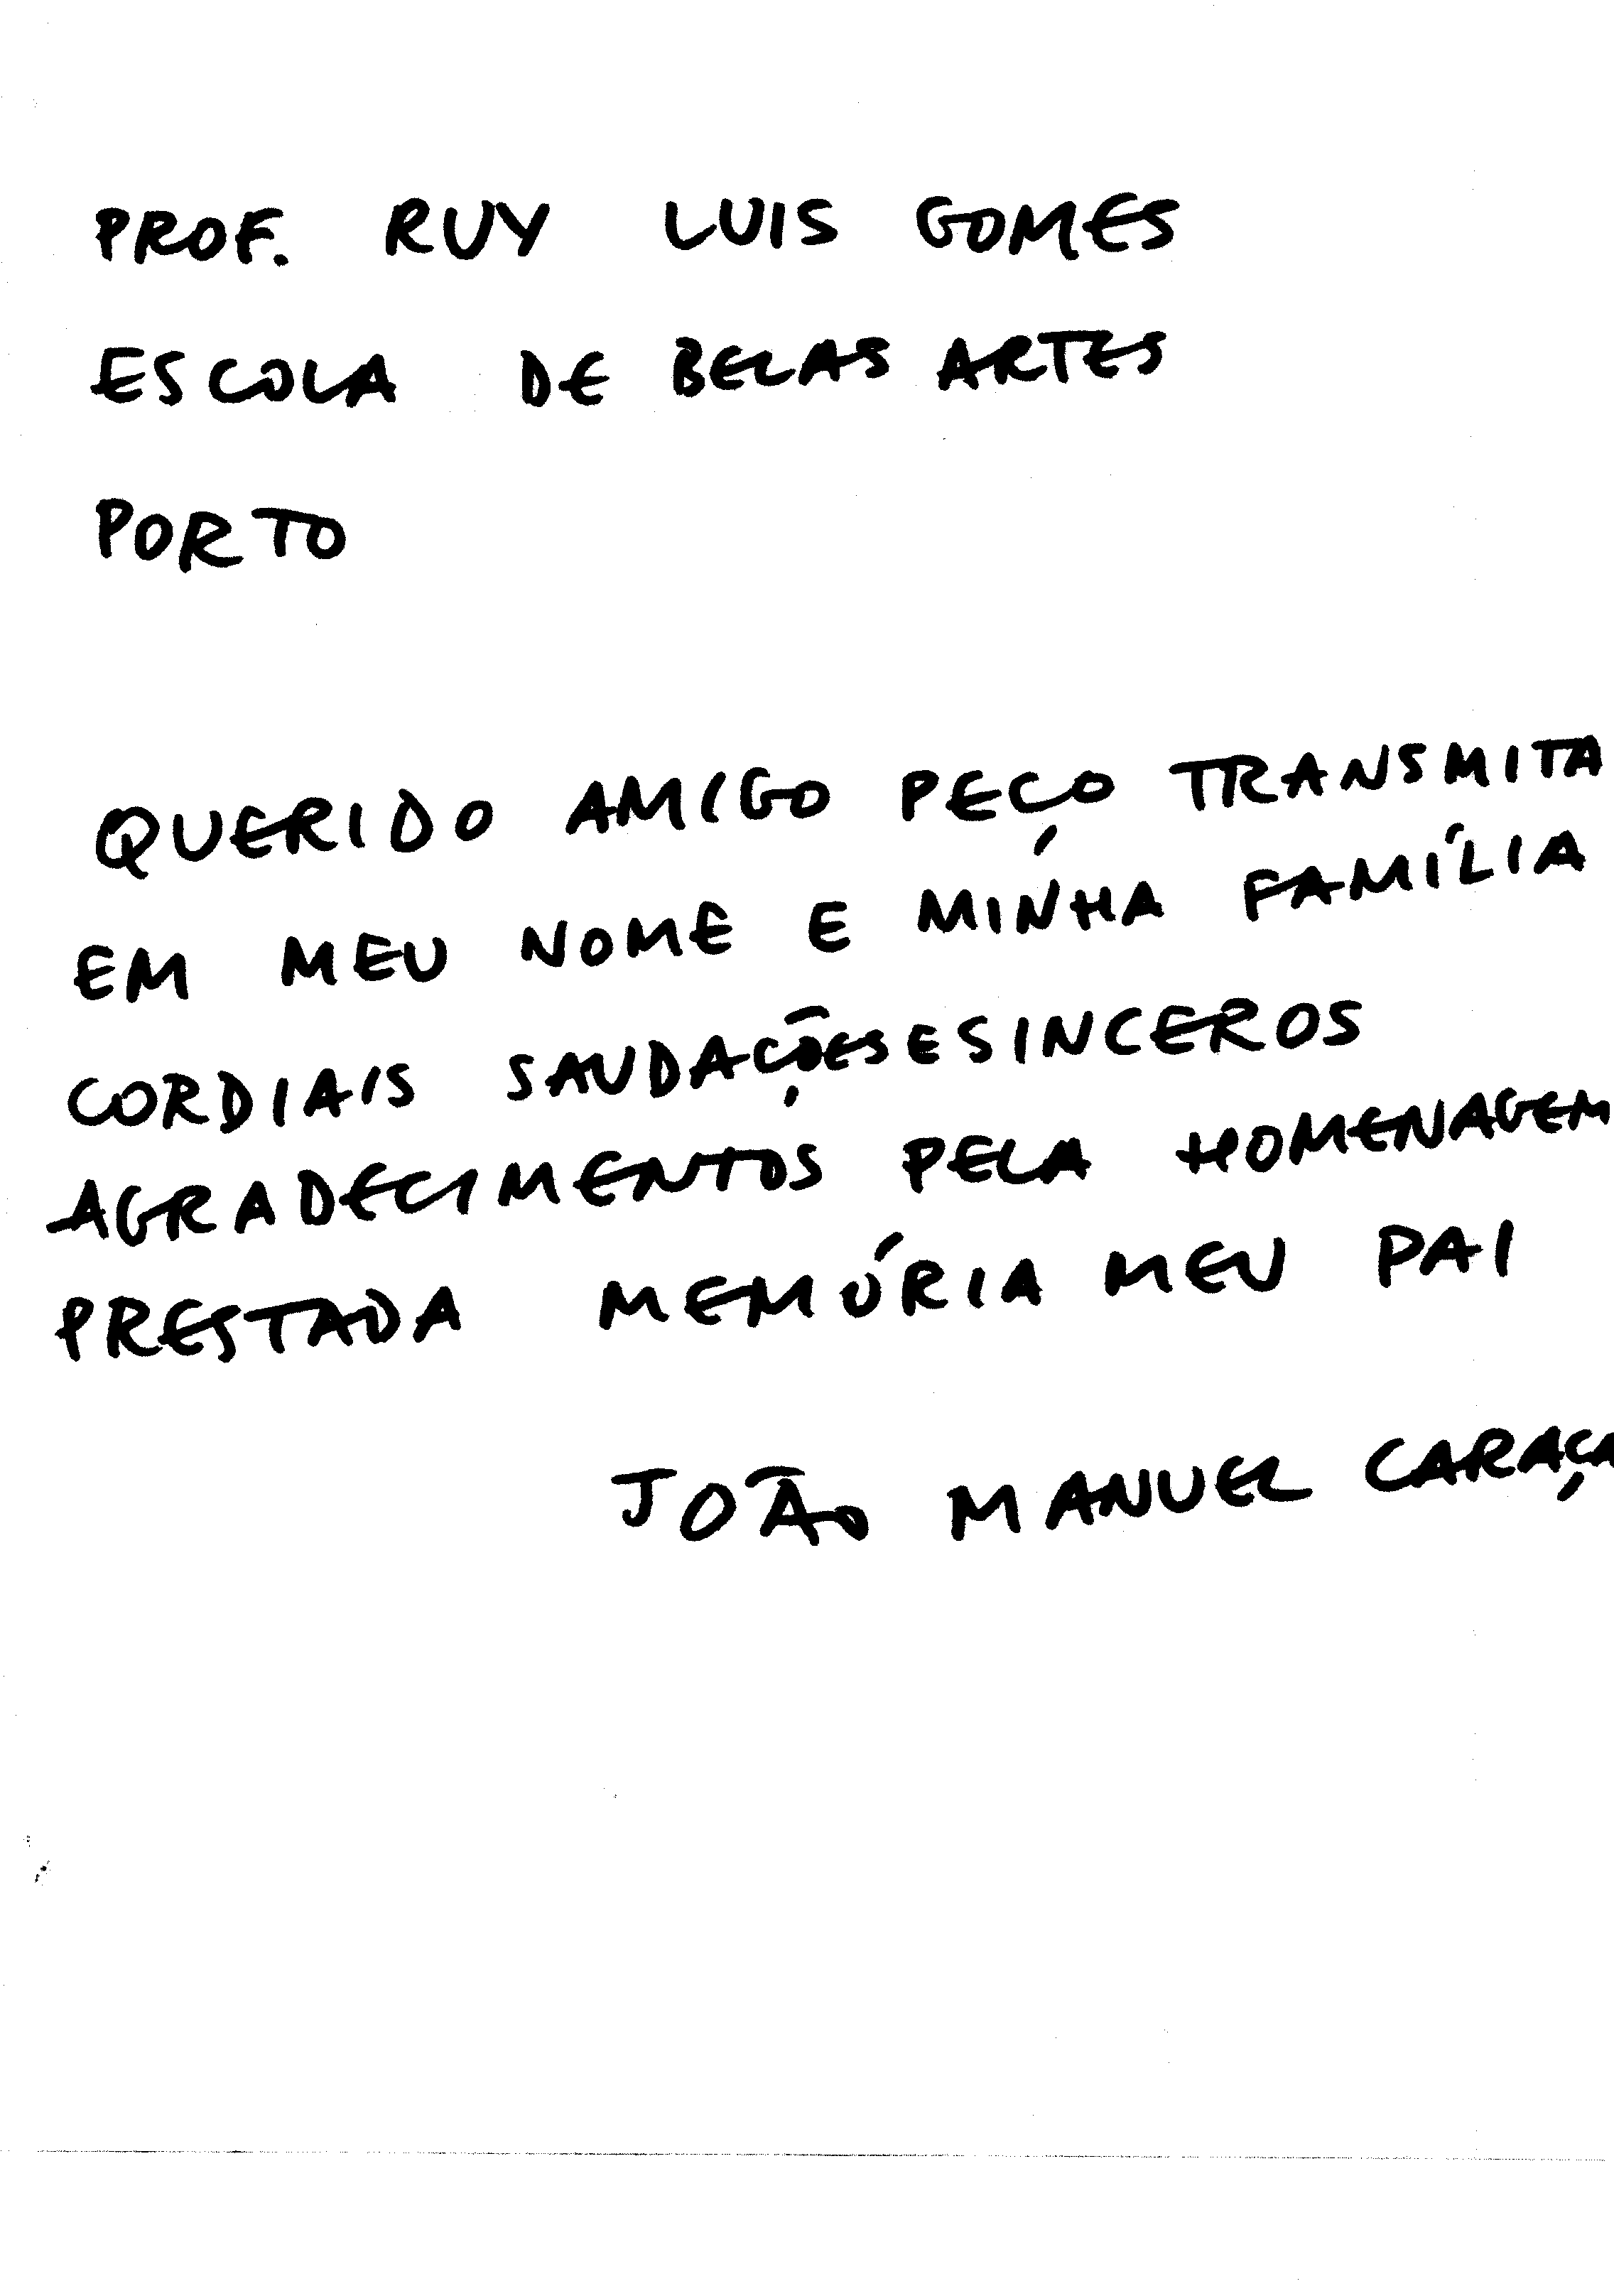 PROF. RUY LUIS GOMES
ESCOLA DE BELAS ARTES
PORTO
QUERIDO AMIGO PEÇO TRANSMITA
EM MEU NOME E MINHA FAMÍLIA
CORDIAIS SAUDAÇÕES E SINCEROS
AGRADECIMENTOS PELA HOMENAGEM
PRESTADA MEMÓRIA MEU PAI
JOÃO MANUEL CARAÇA